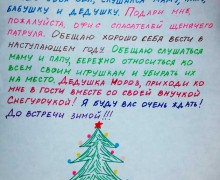 БАБУШКУ И ДЕДУШКУ. ПОДАРИ МНЕ,
ПОЖАЛУЙСТА, ОФИС СПАСАТЕЛЕЙ ЩЕНЯЧЕГО
ПАТРУЛЯ. ОБЕЩАЮ ХОРОШО СЕБЯ ВЕСТИ В
НАСТУПАЮЩЕМ ГОДУ. ОБЕЩАЮ СЛУШАТЬСЯ
МАМУ И ПАПУ, БЕРЕЖНО ОТНОСИТЬСЯ КО
ВСЕМ СВОИМ ИГРУШКАМ И УБИРАТЬ ИХ
НА МЕСТО. ДЕДУШКА МОРОЗ, ПРИХОДИ КО
МНЕ В ГОСТИ ВМЕСТЕ СО СВОЕЙ ВНУЧКОЙ
СНЕГУРОЧКОЙ! Я БУДУ ВАС ОЧЕНЬ ЖДАТЬ!
ДО ВСТРЕЧИ ЗИМОЙ!!!